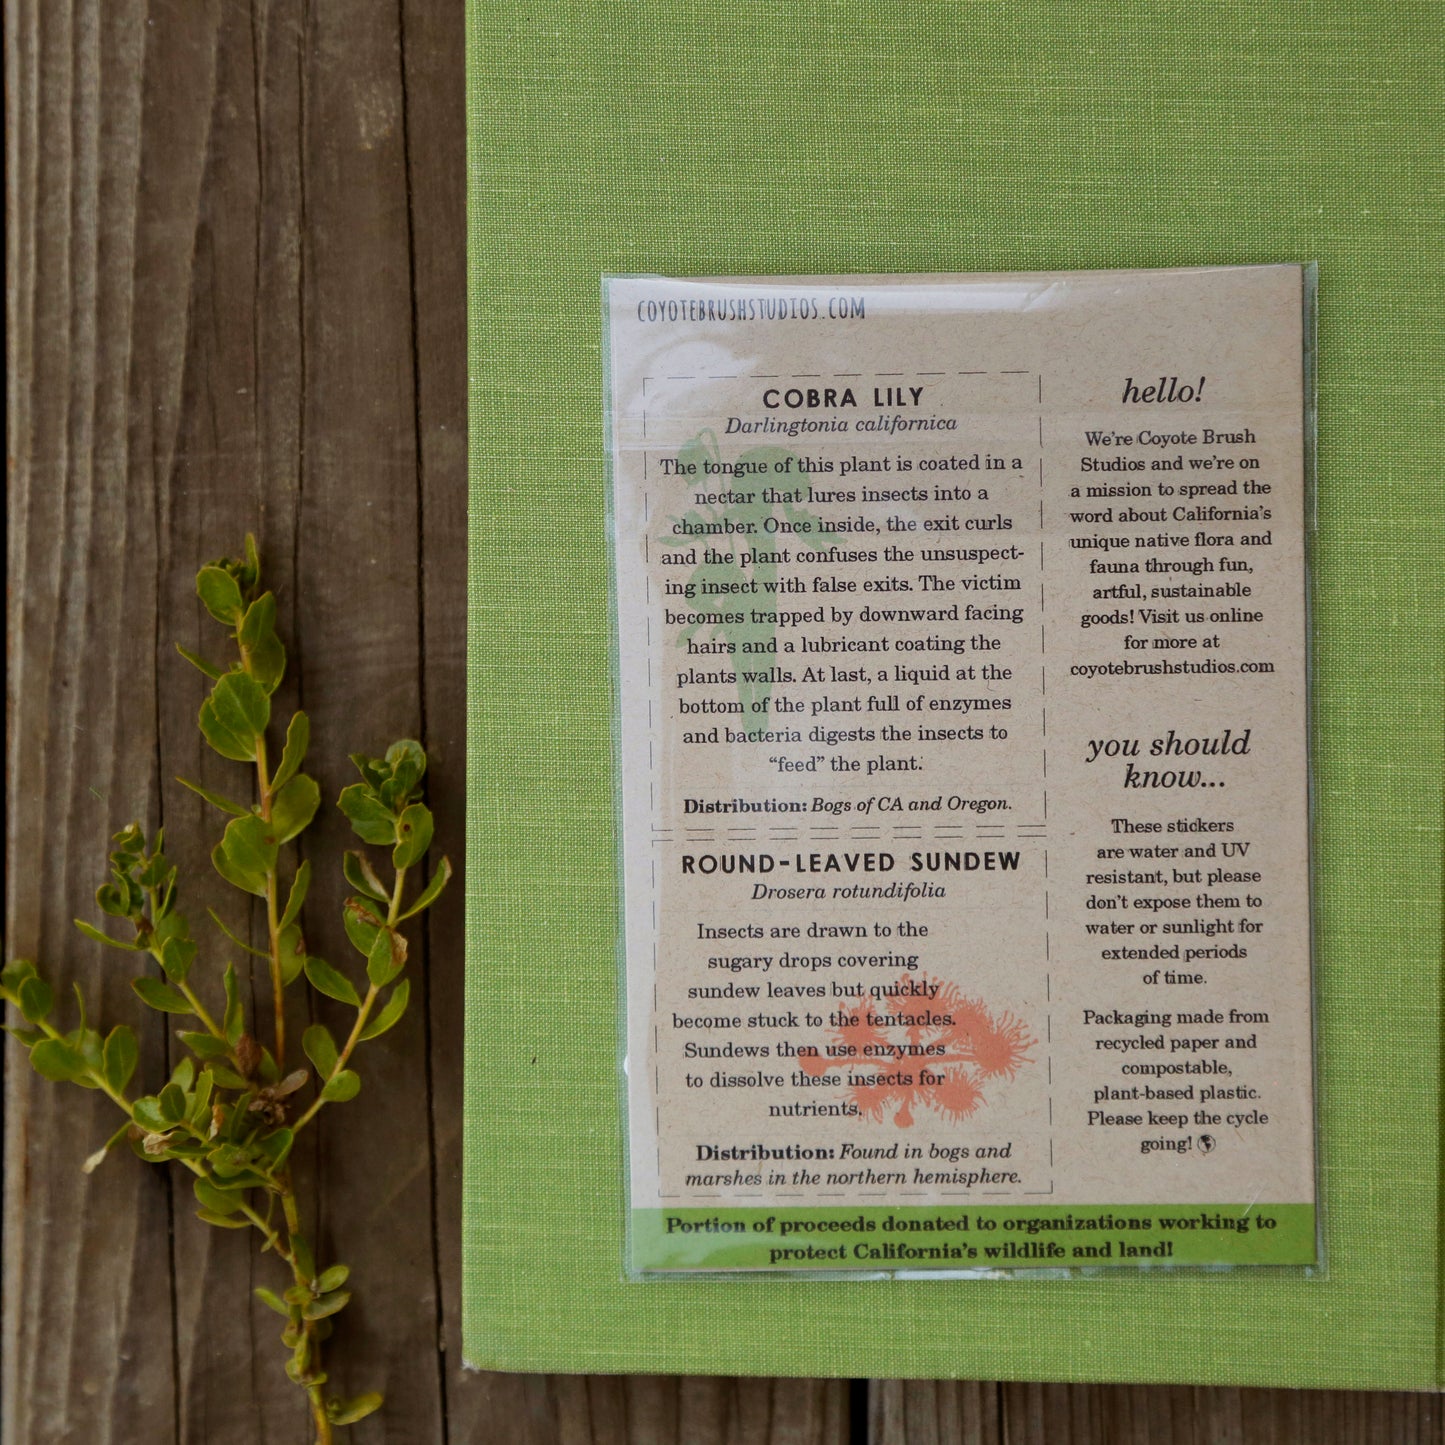 COYOTEBRUSHSTUDIOS.COM
COBRA LILY
Darlingtonia californica
The tongue of this plant is coated in a
nectar that lures insects into a
chamber. Once inside, the exit curls
and the plant confuses the unsuspect-
ing insect with false exits. The victim
becomes trapped by downward facing
hairs and a lubricant coating the
plants walls. At last, a liquid at the
bottom of the plant full of enzymes
and bacteria digests the insects to
“feed” the plant.
Distribution: Bogs of CA and Oregon.
ROUND-LEAVED SUNDEW
Drosera rotundifolia
Insects are drawn to the
sugary drops covering
sundew leaves but quickly
become stuck to the tentacles.
Sundews then use enzymes
to dissolve these insects for
nutrients.
Distribution: Found in bogs and
marshes in the northern hemisphere.
hello!
We’re Coyote Brush
Studios and we’re on
a mission to spread the
word about California’s
unique native flora and
fauna through fun,
artful, sustainable
goods! Visit us online
for more at
coyotebrushstudios.com
you should
know...
These stickers
are water and UV
resistant, but please
don’t expose them to
water or sunlight for
extended periods
of time.
Packaging made from
recycled paper and
compostable,
plant-based plastic.
Please keep the cycle
going!
Portion of proceeds donated to organizations working to
protect California’s wildlife and land!